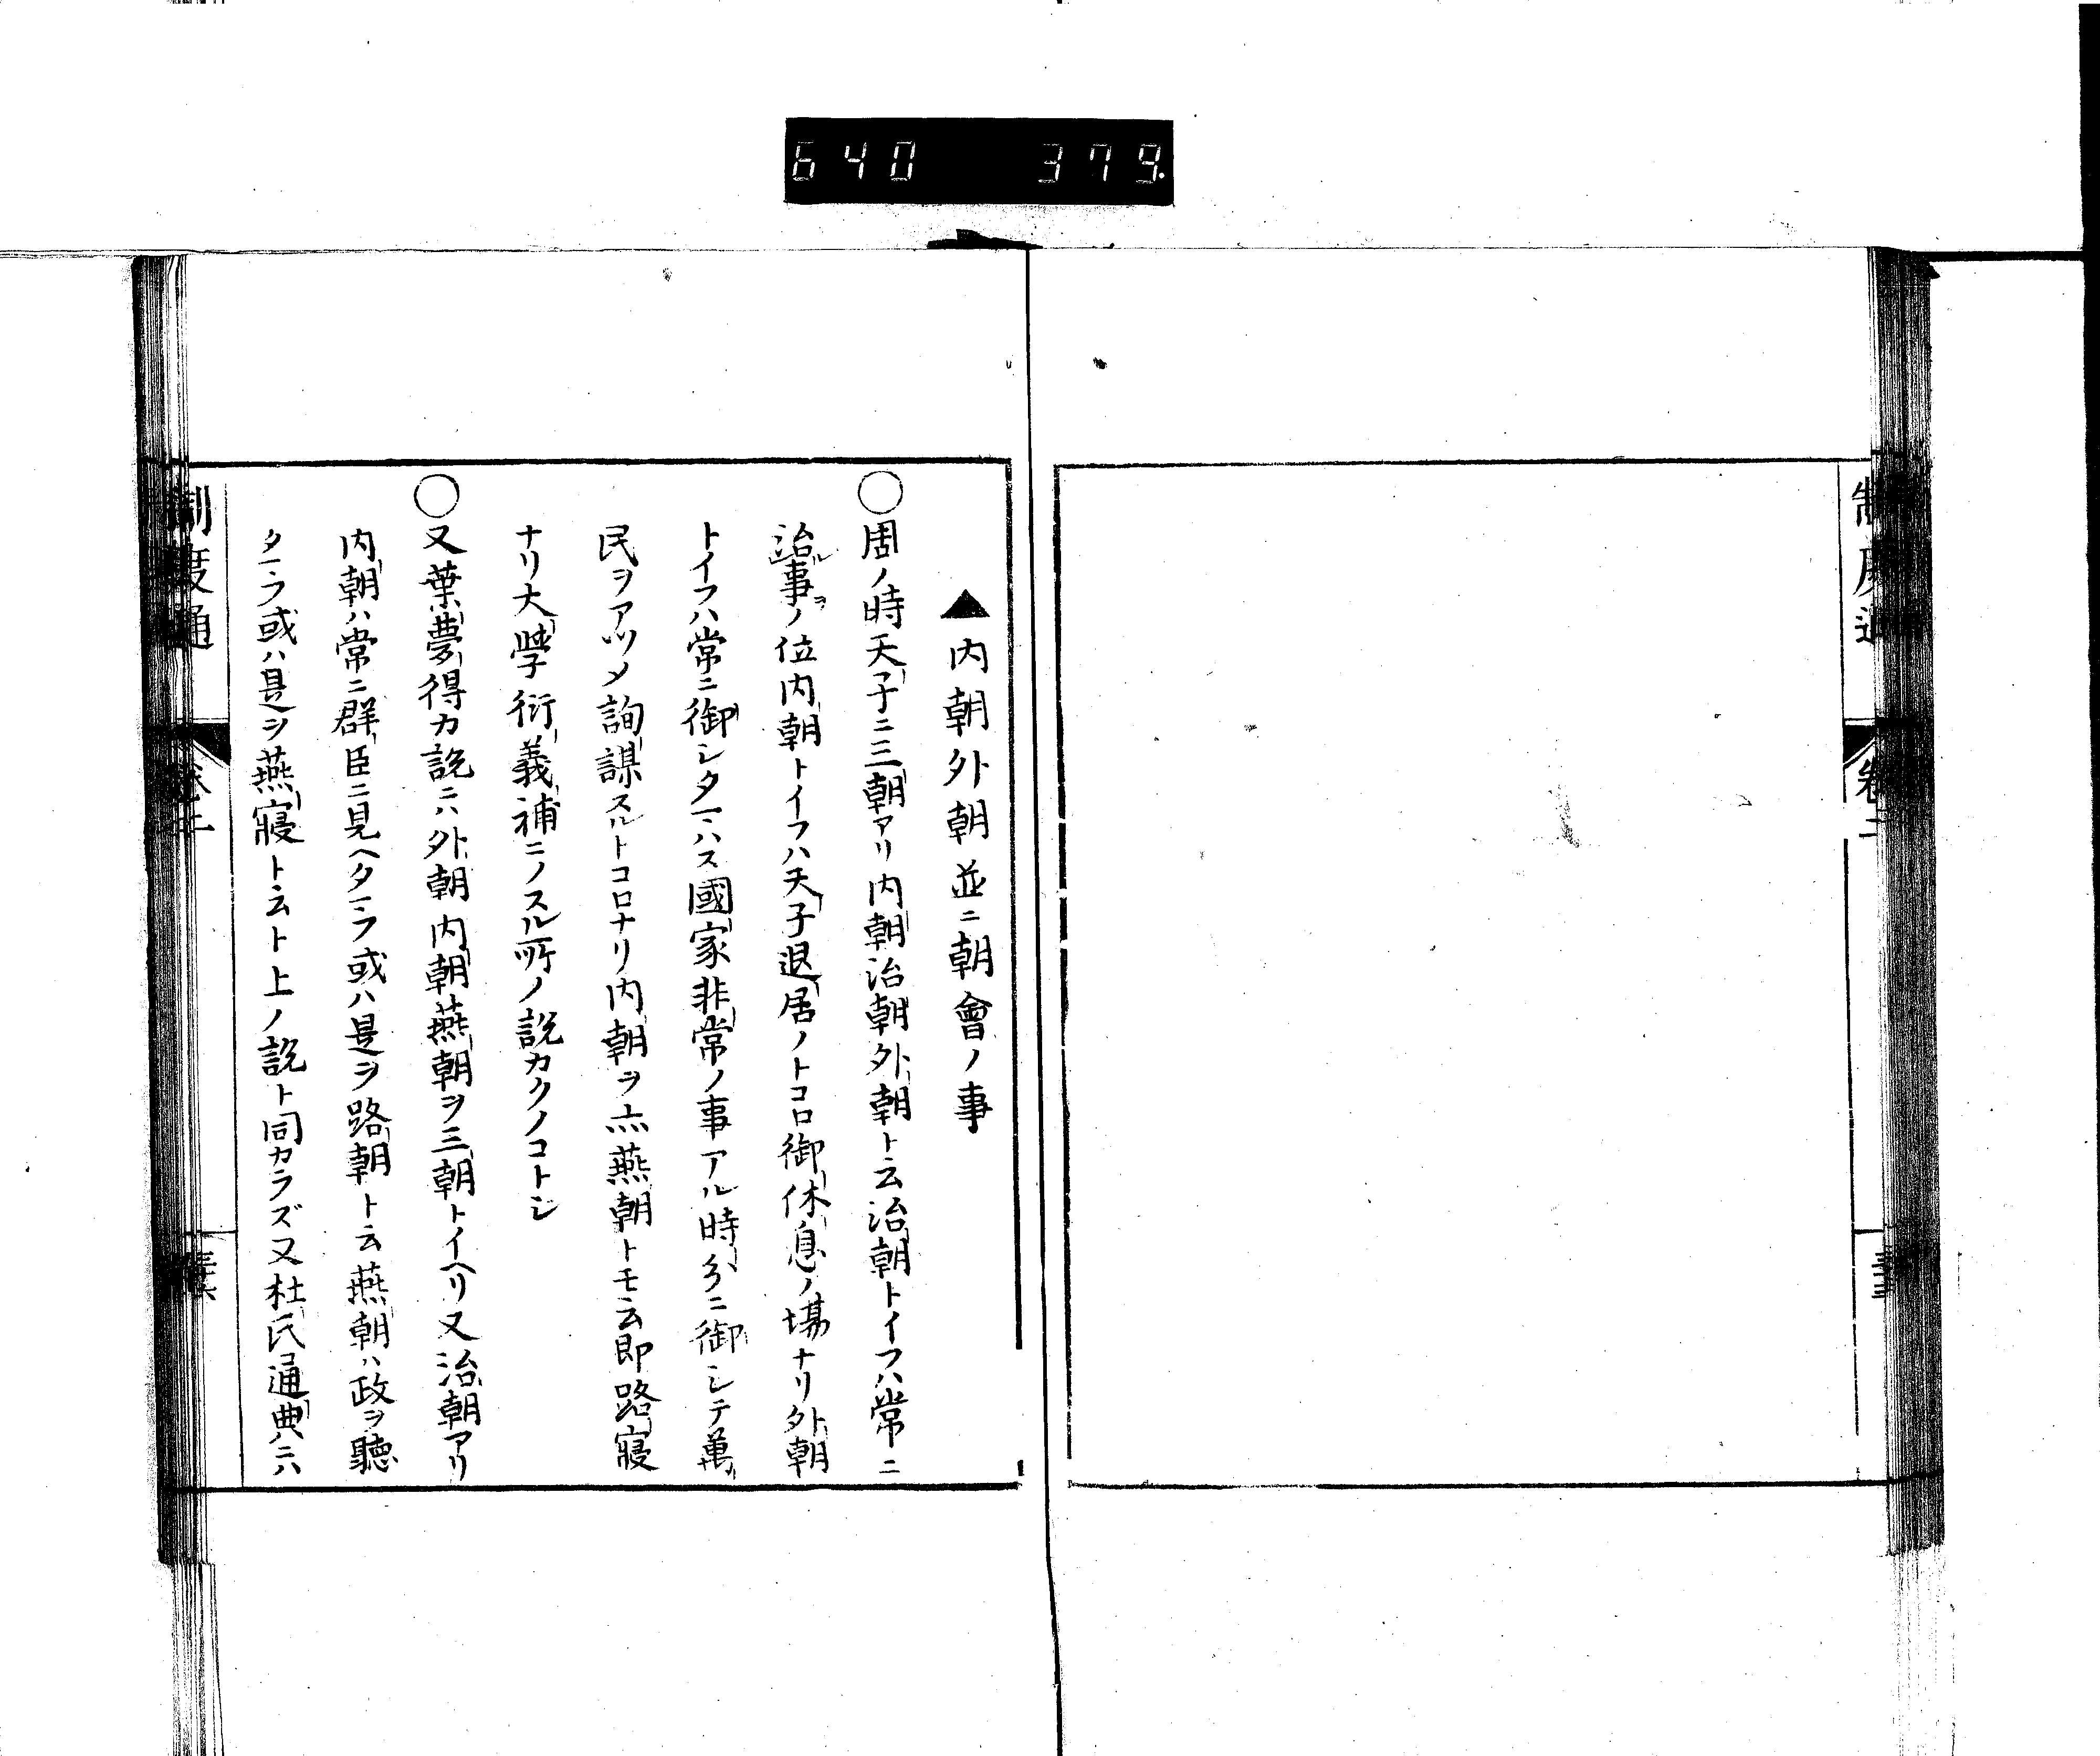 640 379.
▲内朝外朝並ニ朝會ノ事
〇周ノ時天子ニ三朝アリ内朝治朝外朝ト云治朝トイフハ常ニ
治ル事ヲノ位内朝トイフハ天子退居ノトコロ御休息ノ場ナリ外朝
トイフハ常ニ御シタマハス國家非常ノ事アル時分ニ御シテ萬
民ヲアツメ詢謀スルトコロナリ内朝ヲ亦燕朝トモ云即路寢
ナリ大學衍義補ニノスル所ノ説カクノコトシ
〇又葉夢得カ説ニハ外朝内朝燕朝ヲ三朝トイヘリ又治朝アリ
内朝ハ常ニ群臣ニ見ヘタマフ或ハ是ヲ路朝ト云燕朝ハ政ヲ聽
タマフ或ハ是ヲ燕寢ト云ト上ノ説ト同カラズ又杜氏通典ニハ
制度通 卷二